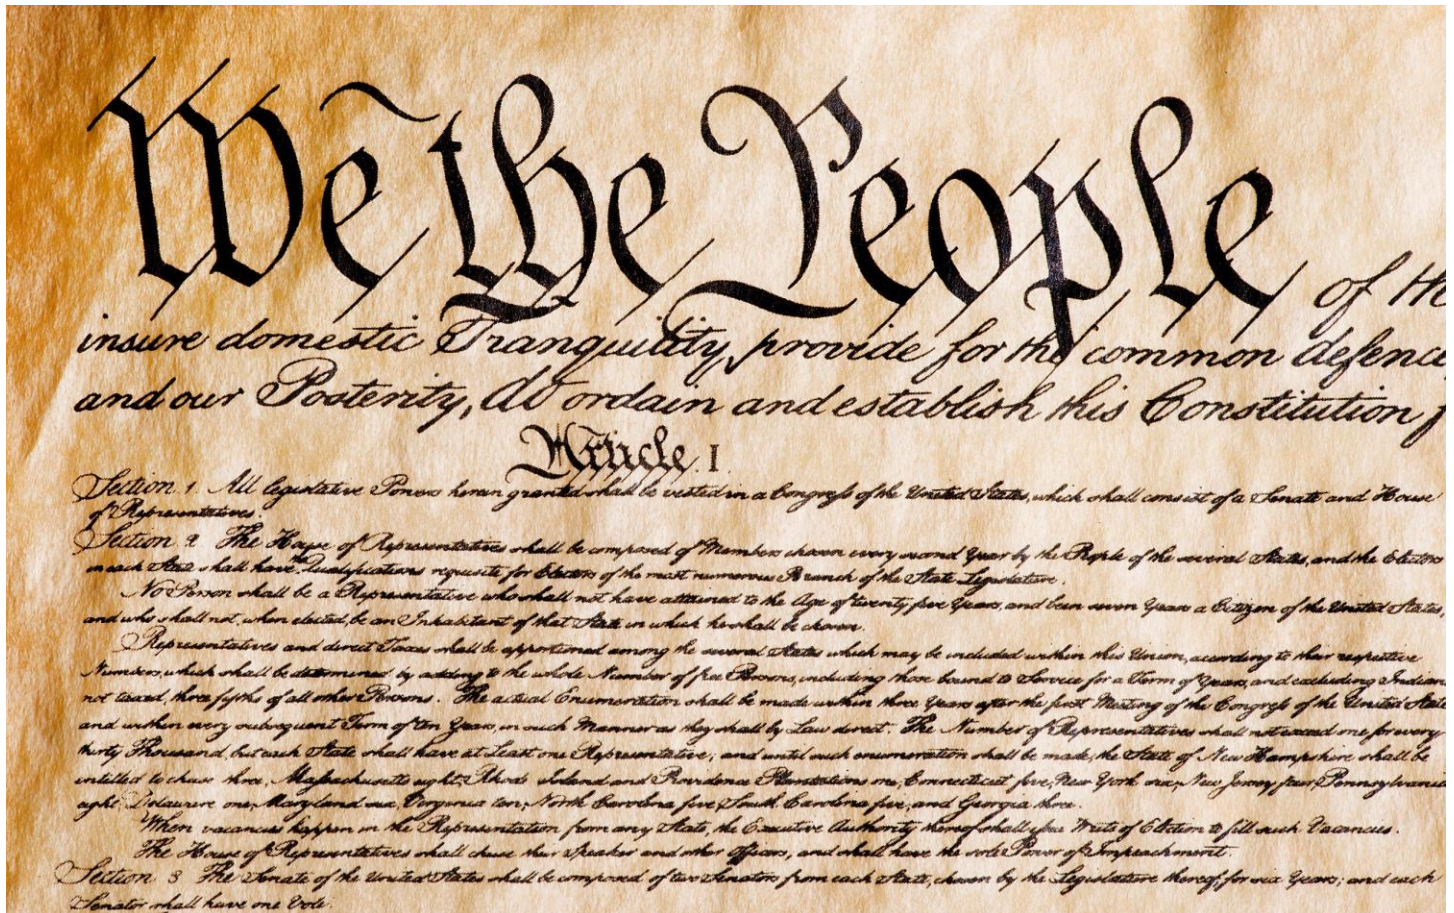 We the People of th
insure domestic Tranquility, provide for the common defence,
and our Posterity, do ordain and establish this Constitution f
Article. I.
Section. 1. All legislative Powers herein granted shall be vested in a Congress of the United States, which shall consist of a Senate and House
of Representatives.
Section. 2. The House of Representatives shall be composed of Members chosen every second Year by the People of the several States, and the Electors
in each State shall have the Qualifications requisite for Electors of the most numerous Branch of the State Legislature.
No Person shall be a Representative who shall not have attained to the Age of twenty five Years, and been seven Years a Citizen of the United States,
and who shall not, when elected, be an Inhabitant of that State in which he shall be chosen.
Representatives and direct Taxes shall be apportioned among the several States which may be included within this Union, according to their respective
Numbers, which shall be determined by adding to the whole Number of free Persons, including those bound to Service for a Term of Years, and excluding Indians
not taxed, three fifths of all other Persons. The actual Enumeration shall be made within three Years after the first Meeting of the Congress of the United State
and within every subsequent Term of ten Years, in such Manner as they shall by Law direct. The Number of Representatives shall not exceed one for every
thirty Thousand, but each State shall have at Least one Representative; and until such enumeration shall be made, the State of New Hampshire shall be
entitled to chuse three, Massachusetts eight, Rhode Island and Providence Plantations one, Connecticut five, New York six, New Jersey four, Pennsylvania
eight, Delaware one, Maryland six, Virginia ten, North Carolina five, South Carolina five, and Georgia three.
When vacancies happen in the Representation from any State, the Executive Authority thereof shall issue Writs of Election to fill such Vacancies.
The House of Representatives shall chuse their Speaker and other Officers; and shall have the sole Power of Impeachment.
Section. 3. The Senate of the United States shall be composed of two Senators from each State, chosen by the Legislature thereof, for six Years; and each
Senator shall have one Vote.